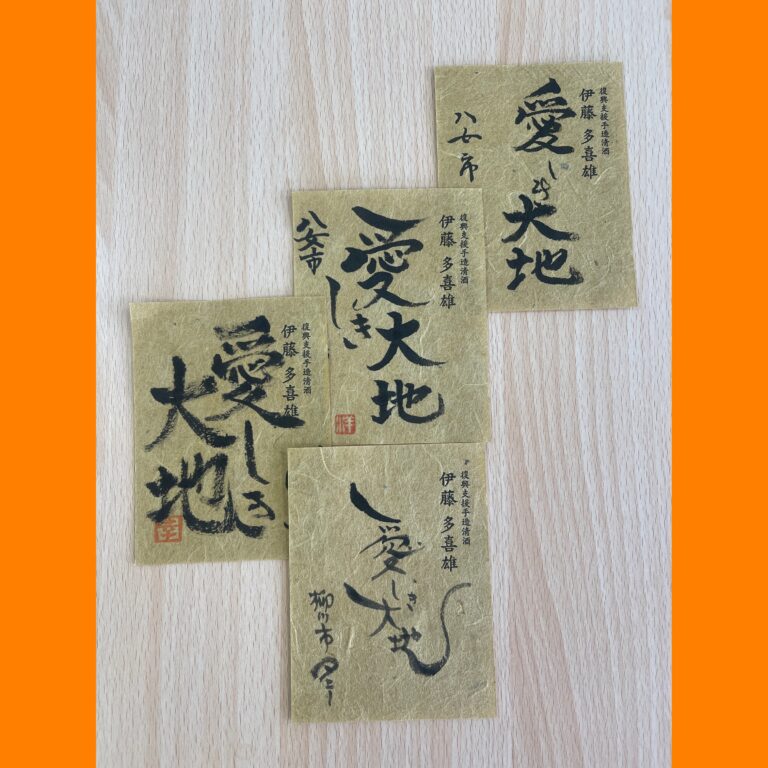 復興支援手造清酒
伊藤 多喜雄
愛しき
大地
八女市
復興支援手造清酒
伊藤 多喜雄
愛しき大地
八女市
復興支援手造清酒
伊藤 多喜雄
愛しき
大地
復興支援手造清酒
伊藤 多喜雄
愛しき大地
柳川市